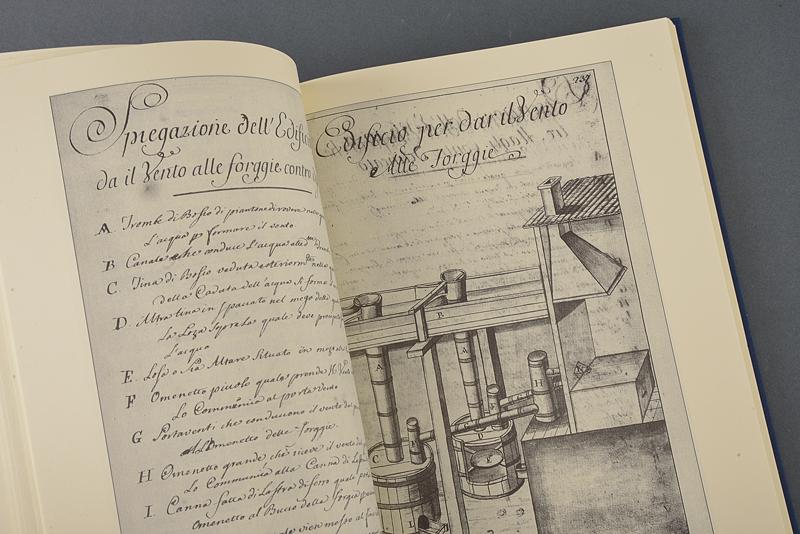 Spiegazione dell'Edifi
da il Vento alle forggie contro
A. Trombe di Bosio di piantone di rovere
L'acqua p formare il vento
B Canale che conduce L'acqua alle
C. Tina di Bosio veduta esteriorm
della Caduta dell'acqua si forma
D. Altra tina in spaccato nel mezo della
La Loza sopra la quale deve
L'acqua
E. Loso o sia Altare Situato in mezo
F Omenetto picciolo quale prende il Vento
Lo Comunica al porta Vento
G Portaventi che conducono il vento
all'Omenetto delle forggie.
H Omenetto grande che riceve il vento
Lo Communica alla Canna di
I. Canna fatta di Lastra di ferro quale
Omenetto al Buco della forgia
vien mosso al
237
Edificio per dar il Vento
alle Forggie
A
B
A
H
D
C
L